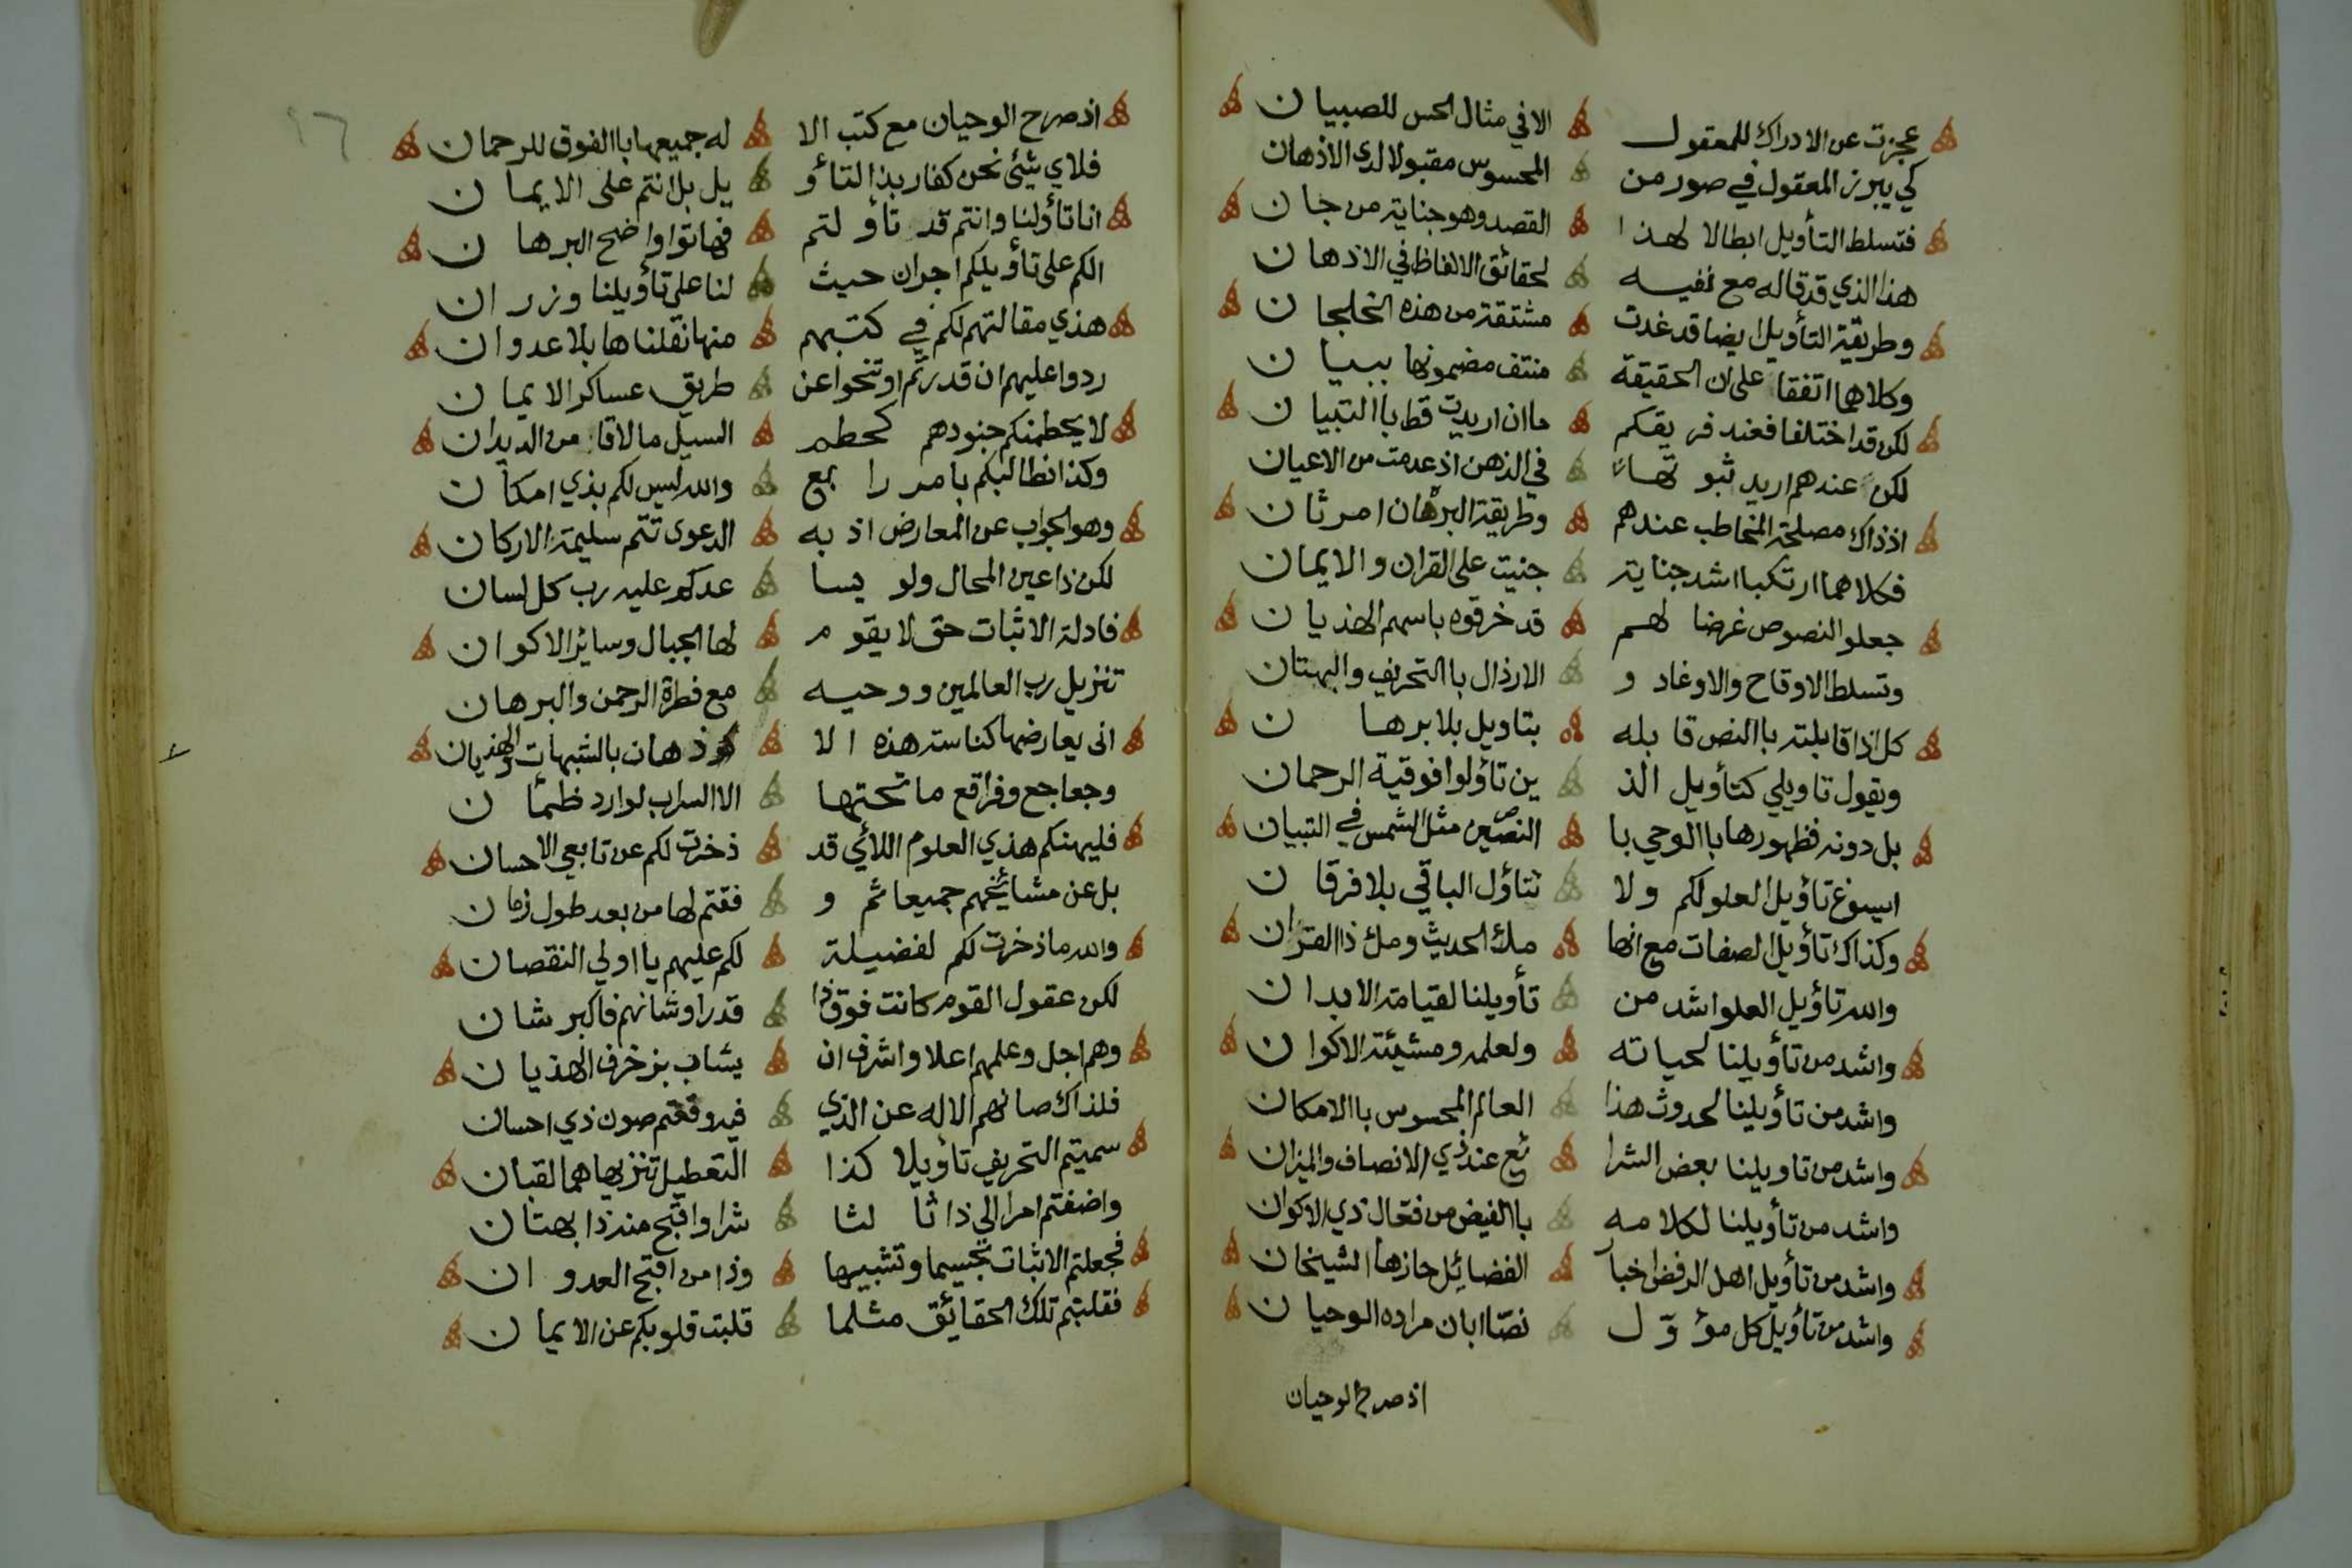 عجزت عن الادراك للمعقول الا في مثال الحس للصبيان
كي يبرز المعقول في صور من المحسوس مقبولا لدى الاذهان
فتسلط التأويل ابطالا لهذا القصد وهو جناية من جان
هذا الذي قد قاله مع نفيه لحقائق الالفاظ في الاذهان
وطريقة التأويل ايضا قد غدت مشتقة من هذه الخلجان
وكلاهما اتفقا على ان الحقيقة منتف مضمونها ببيان
لكن قد اختلفا فعند فريقكم ما ان اريدت قط باالتبيان
لكن عندهم اريد ثبوتها في الذهن اذ عدمت من الاعيان
اذ ذاك مصلحة المخاطب عندهم وطريقة البرهان امر ثان
فكلاهما ارتكبا اشد جناية جنيت على القران والايمان
جعلو النصوص غرضا لهم قد خرقوه باسهم الهذيان
وتسلط الاوقاح والاوغاد و الارذال باالتحريف والبهتان
كل اذا قابلته باالنص قابله بتاويل بلا برهان
ويقول تاويلي كتأويل الذ ين تاؤلوا فوقية الرحمان
بل دونه فظهورها باالوحي با النصين مثل الشمس في التبيان
ايسوغ تاؤيل العلو لكم ولا نتاؤل الباقي بلا فرقان
وكذاك تاؤيل الصفات مع انها ملئ الحديث وملئ ذا القران
والله تاؤيل العلو اشد من تأويلنا لقيامة الابدان
واشد من تأويلنا لحياته ولعلمه ومشيئة الاكوان
واشد من تأويلنا لحدوث هذا العالم المحسوس باالامكان
واشد من تاويلنا بعض الشرا ئع عند ذي الانصاف والميزان
واشد من تأويلنا لكلامه باالفيض من فعال ذي الاكوان
واشد من تأويل اهل الرفض اخبار الفضائل حازها الشيخان
واشد من تأويل كل مؤوّل نصّا ابان مراده الوحيان
اذ صرح الوحيان
اذ صرح الوحيان مع كتب الا له جميعها باالفوق للرحمان
فلاي شيئ نحن كفار بذا التأو يل بل انتم على الايمان
انا تأولنا وانتم قد تأولتم فهاتوا واضح البرهان
الكم على تأويلكم اجران حيث لنا على تأويلنا وزران
هذي مقالتهم لكم في كتبهم منها نقلناها بلا عدوان
ردوا عليهم ان قدرتم او تنحوا عن طريق عساكر الايمان
لا يحطمنكم جنودهم كحطم السيل ما لاقا من الديدان
وكذا نطالبكم بامر رابع والله ليس لكم بذي امكان
وهو الجواب عن المعارض اذ به الدعوى تتم سليمة الاركان
لكن ذا عين المحال ولو يسا عدكم عليه رب كل لسان
فادلة الاثبات حق لا يقوم لها الجبال وسائر الاكوان
تنزيل رب العالمين ووحيه مع فطرة الرحمن والبرهان
انى يعارضها كناسة هذه الا ذهان بالشبهات والهذيان
وجعاجع وفراقع ما تحتها الا السراب لوارد ظمأن
فليهنكم هذي العلوم اللائي قد ذخرت لكم عن تابعي الاحسان
بل عن مشائخهم جميعا ثم و فقتم لها من بعد طول زمان
والله ما ذخرت لكم لفضيلة لكم عليهم يا اولي النقصان
لكن عقول القوم كانت فوق ذا قدرا وشانهم فاكبر شان
وهم اجل وعلمهم اعلا واشرف ان يشاب بزخرف الهذيان
فلذاك صانهم الاله عن الذي فيه وقعتم صون ذي احسان
سميتم التحريف تأويلا كذا التعطيل تنزيها هما لقبان
واضفتم امرا الي ذا ثالثا شرا واقبح منه ذا بهتان
فجعلتم الاثبات تجسيما وتشبيها وذا من اقبح العدوان
فقلبتم تلك الحقائق مثلما قلبت قلوبكم عن الايمان